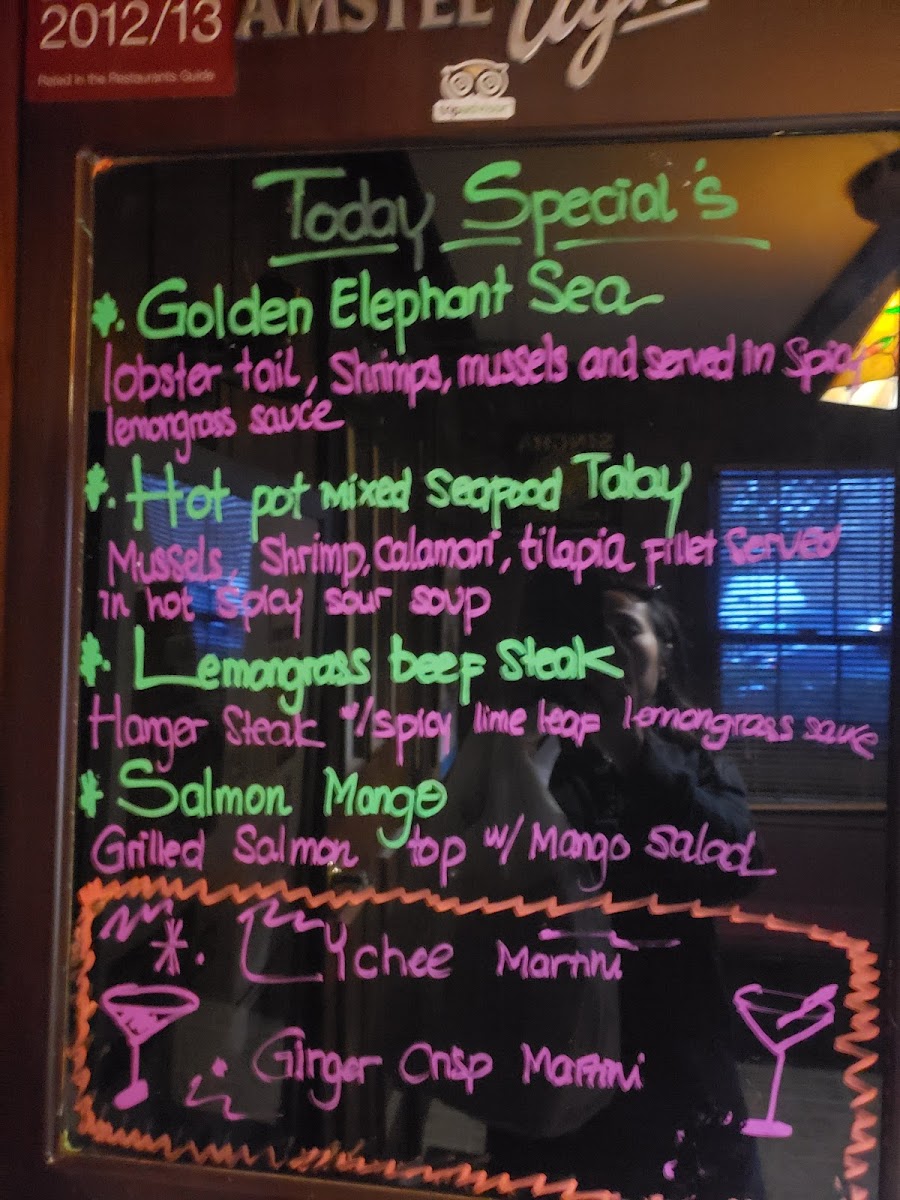 2012/13
Rated in the Restaurants Guide
AMSTEL Light
tripadvisor
Today Special's
*. Golden Elephant Sea
lobster tail, Shrimps, mussels and served in Spicy
lemongrass sauce
*. Hot pot mixed Seafood Talay
Mussels, Shrimp, Calamari, tilapia fillet served
in hot spicy sour soup
*. Lemongrass beef Steak
Hanger Steak w/spicy lime leaf lemongrass sauce
* Salmon Mango
Grilled Salmon top w/ Mango Salad
*. Lychee Martini
*. Ginger Crisp Martini